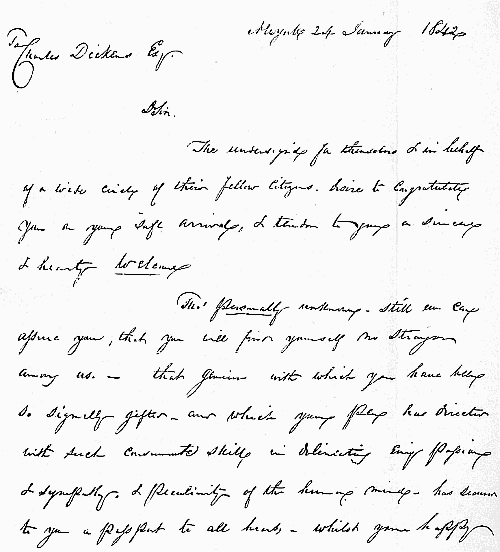 NYork 24 January 1842
To
Charles Dickens Esq.
DSir.
The undersigned for themselves & in behalf
of a wide circle of their fellow Citizens. desire to Congratulate
you on your safe arrival, & tender to you a sincere
& hearty Welcome
Tho' personally unknown - still we can
assure you, that you will find yourself no Stranger
among us. - that Genius with which you have been
so signally gifted - and which your Pen has directed
with such consummate skill in delineating every Passion
& sympathy & Peculiarity of the human mind - has secured
to you a passport to all hearts - whilst your happy